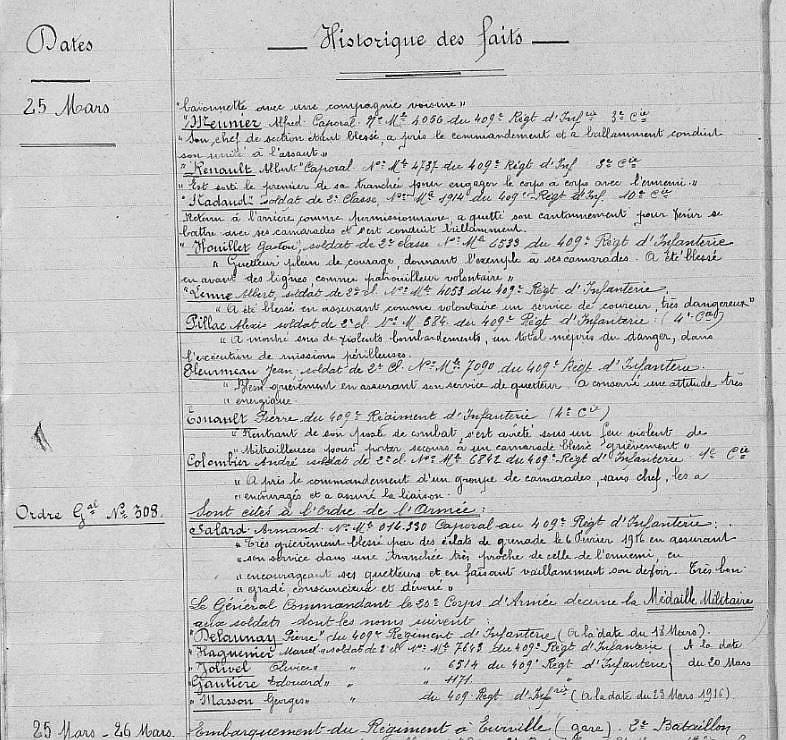 Dates
Historique des faits
25 Mars
"baionnette avec une compagnie voisine"
"Meunier Alfred Caporal Nº Mle 4056 du 409e Régt d'Infrie 3e Cie
"Son chef de section étant blessé, a pris le commandement et a vaillamment conduit
son unité à l'assaut"
"Renault Albert" Caporal Nº Mle 4737 du 409e Régt d'Inf 3e Cie
"Est sorti le premier de sa tranchée pour engager le corps à corps avec l'ennemi."
"Nadaud" soldat de 2e Classe, Nº Mle 1914 du 409e Régt d'Inf. 10e Cie
Retenu à l'arrière comme permissionnaire, a quitté son cantonnement pour venir se
battre avec ses camarades et s'est conduit brillamment.
" Houillet Gaston, soldat de 2e classe Nº Mle 6533 du 409e Régt d'Infanterie
" Guetteur plein de courage, donnant l'exemple à ses camarades. A été blessé
en avant des lignes comme patrouilleur volontaire"
" Albert, soldat de 2e cl. Nº Mle 4053 du 409e Régt d'Infanterie.
"A été blessé en assurant comme volontaire un service de coureur, très dangereux"
Pillac Alexis soldat de 2e cl. Nº M 384 du 409e Régt d'Infanterie. (4e Cie)
"A montré sous de violents bombardements, un total mépris du danger, dans
l'exécution de missions périlleuses.
Fleurmeau Jean soldat de 2e Cl. Nº Mle 7090 du 409e Régt d'Infanterie.
" Blessé grièvement en assurant son service de guetteur. A conservé une attitude très
" énergique.
Esnault Pierre du 409e Régiment d'Infanterie (4e Cie)
"Rentrant de son poste de combat s'est arrêté sous un feu violent de
"Mitrailleuses pour porter secours à un camarade blessé grièvement"
Colombier André soldat de 2e cl. Nº Mle 6842 du 409e Régt d'Infanterie 4e Cie
"A pris le commandement d'un groupe de camarades, sans chef, les a
"encouragés et a assuré la liaison.
Ordre Gal Nº 308.
Sont cités à l'Ordre de l'Armée:
Salard Armand Nº Mle 014.330 Caporal au 409e Régt d'Infanterie:
"Très grièvement blessé par des éclats de grenade le 6 Février 1916 en assurant
"son service dans une tranchée très proche de celle de l'ennemi, en
"encourageant ses guetteurs et en faisant vaillamment son devoir. Très bon
"gradé, consciencieux et dévoué"
Le Général Commandant le 20e Corps d'Armée décerne la Médaille Militaire
aux soldats dont les noms suivent:
"Delaunay Pierre" du 409e Régiment d'Infanterie (à la date du 18 Mars).
"Haguenier Marcel" soldat de 2e cl Nº Mle 7643 du 409e Régt d'Infanterie
"Jolivel Olivier " " 6514 du 409e Régt d'Infanterie
A la date
du 20 Mars
"Gautière Edouard" " " 1171. "
"Masson Georges" " du 409e Régt d'Infrie (à la date du 23 Mars 1916)
25 Mars - 26 Mars.
Embarquement du Régiment à Eurville (gare). 2e Bataillon